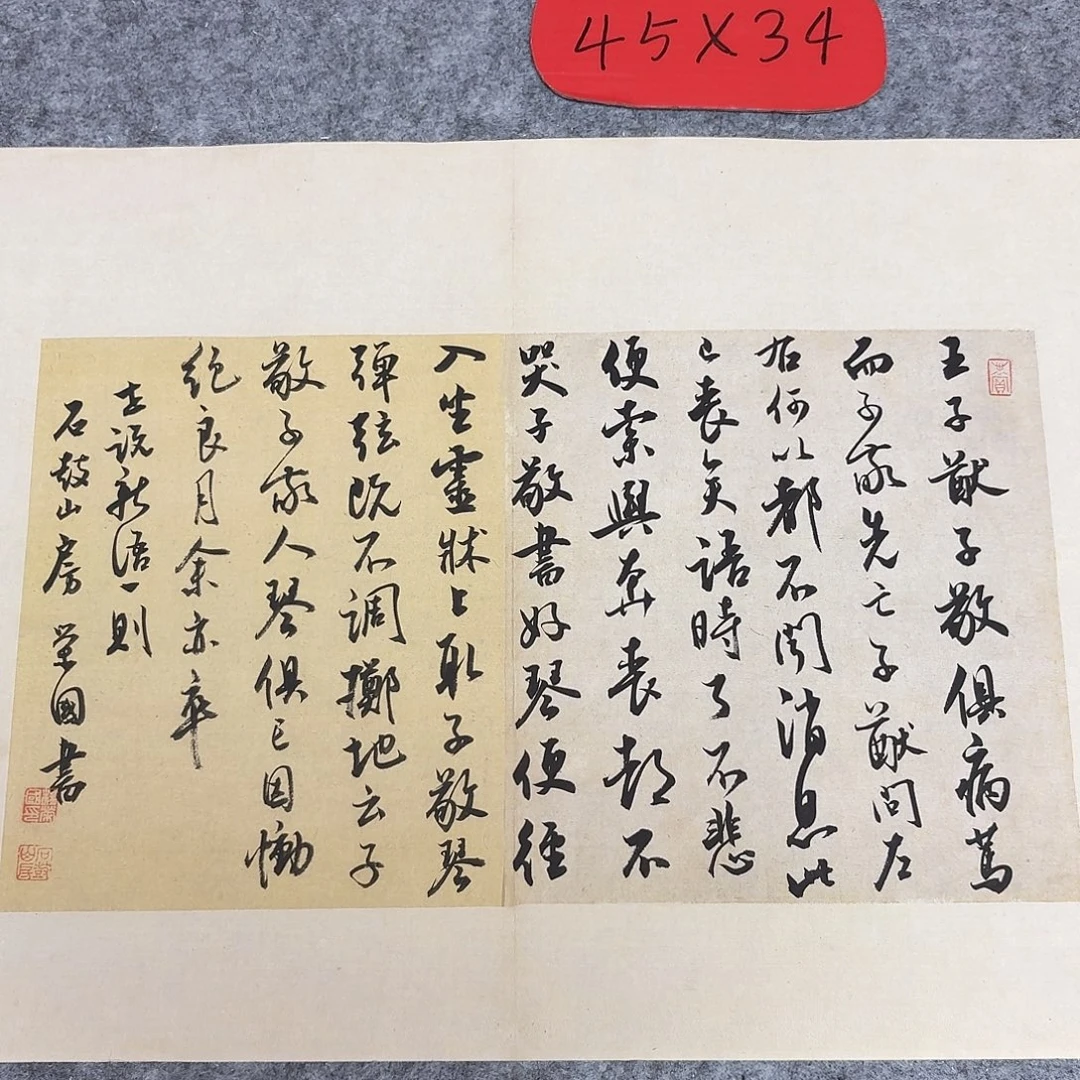 45X34
王子猷子敬俱病篤
而子敬先亡子猷問左
右何以都不聞消息此
已喪矣語時了不悲
便索輿奔喪都不
哭子敬書好琴便徑
入坐靈牀上取子敬琴
彈弦既不調擲地云子
敬子敬人琴俱亡因慟
絕良月余亦卒
世說新語一則
石鼓山房 榮國書